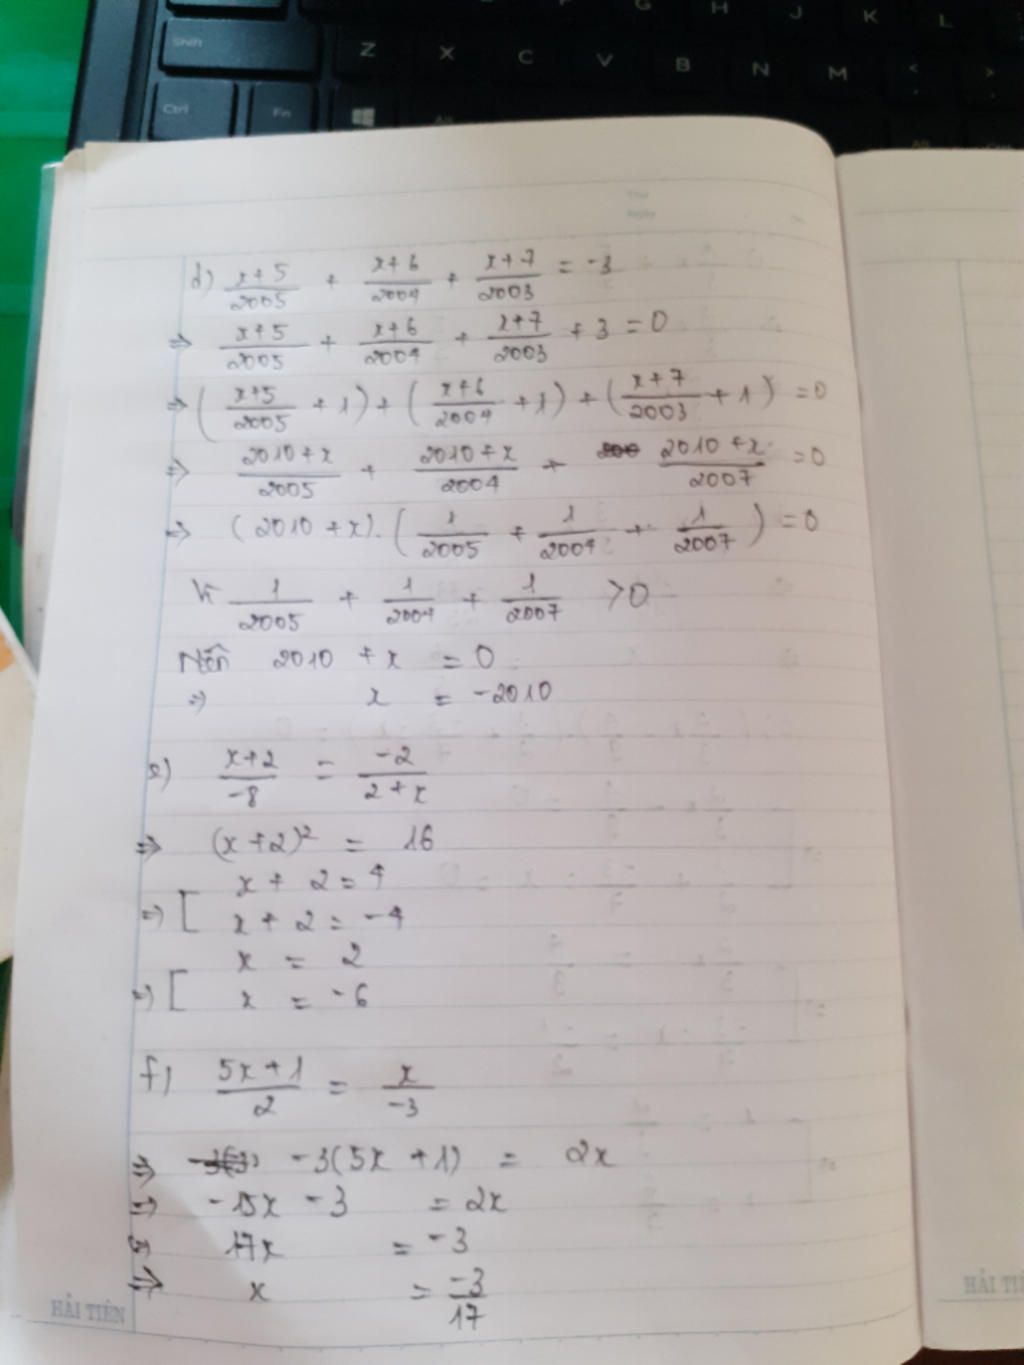 G H J K L
Shift Z X C V B N M < >
Ctrl Fn Alt
Thứ
Ngày
d) \frac{x+5}{2005} + \frac{x+6}{2004} + \frac{x+7}{2003} = -3
=> \frac{x+5}{2005} + \frac{x+6}{2004} + \frac{x+7}{2003} + 3 = 0
=> (\frac{x+5}{2005} + 1) + (\frac{x+6}{2004} + 1) + (\frac{x+7}{2003} + 1) = 0
=> \frac{2010+x}{2005} + \frac{2010+x}{2004} + \frac{2010+x}{2007} = 0
=> (2010+x).(\frac{1}{2005} + \frac{1}{2004} + \frac{1}{2007}) = 0
Vì \frac{1}{2005} + \frac{1}{2004} + \frac{1}{2007} > 0
Nên 2010 + x = 0
=> x = -2010
e) \frac{x+2}{-8} = \frac{-2}{2+x}
=> (x+2)² = 16
x + 2 = 4
=> [ x + 2 = -4
x = 2
=> [ x = -6
f) \frac{5x+1}{2} = \frac{x}{-3}
=> -3(5x+1) = 2x
=> -15x - 3 = 2x
=> 17x = -3
=> x = \frac{-3}{17}
HẢI TIẾN
HẢI TIẾ